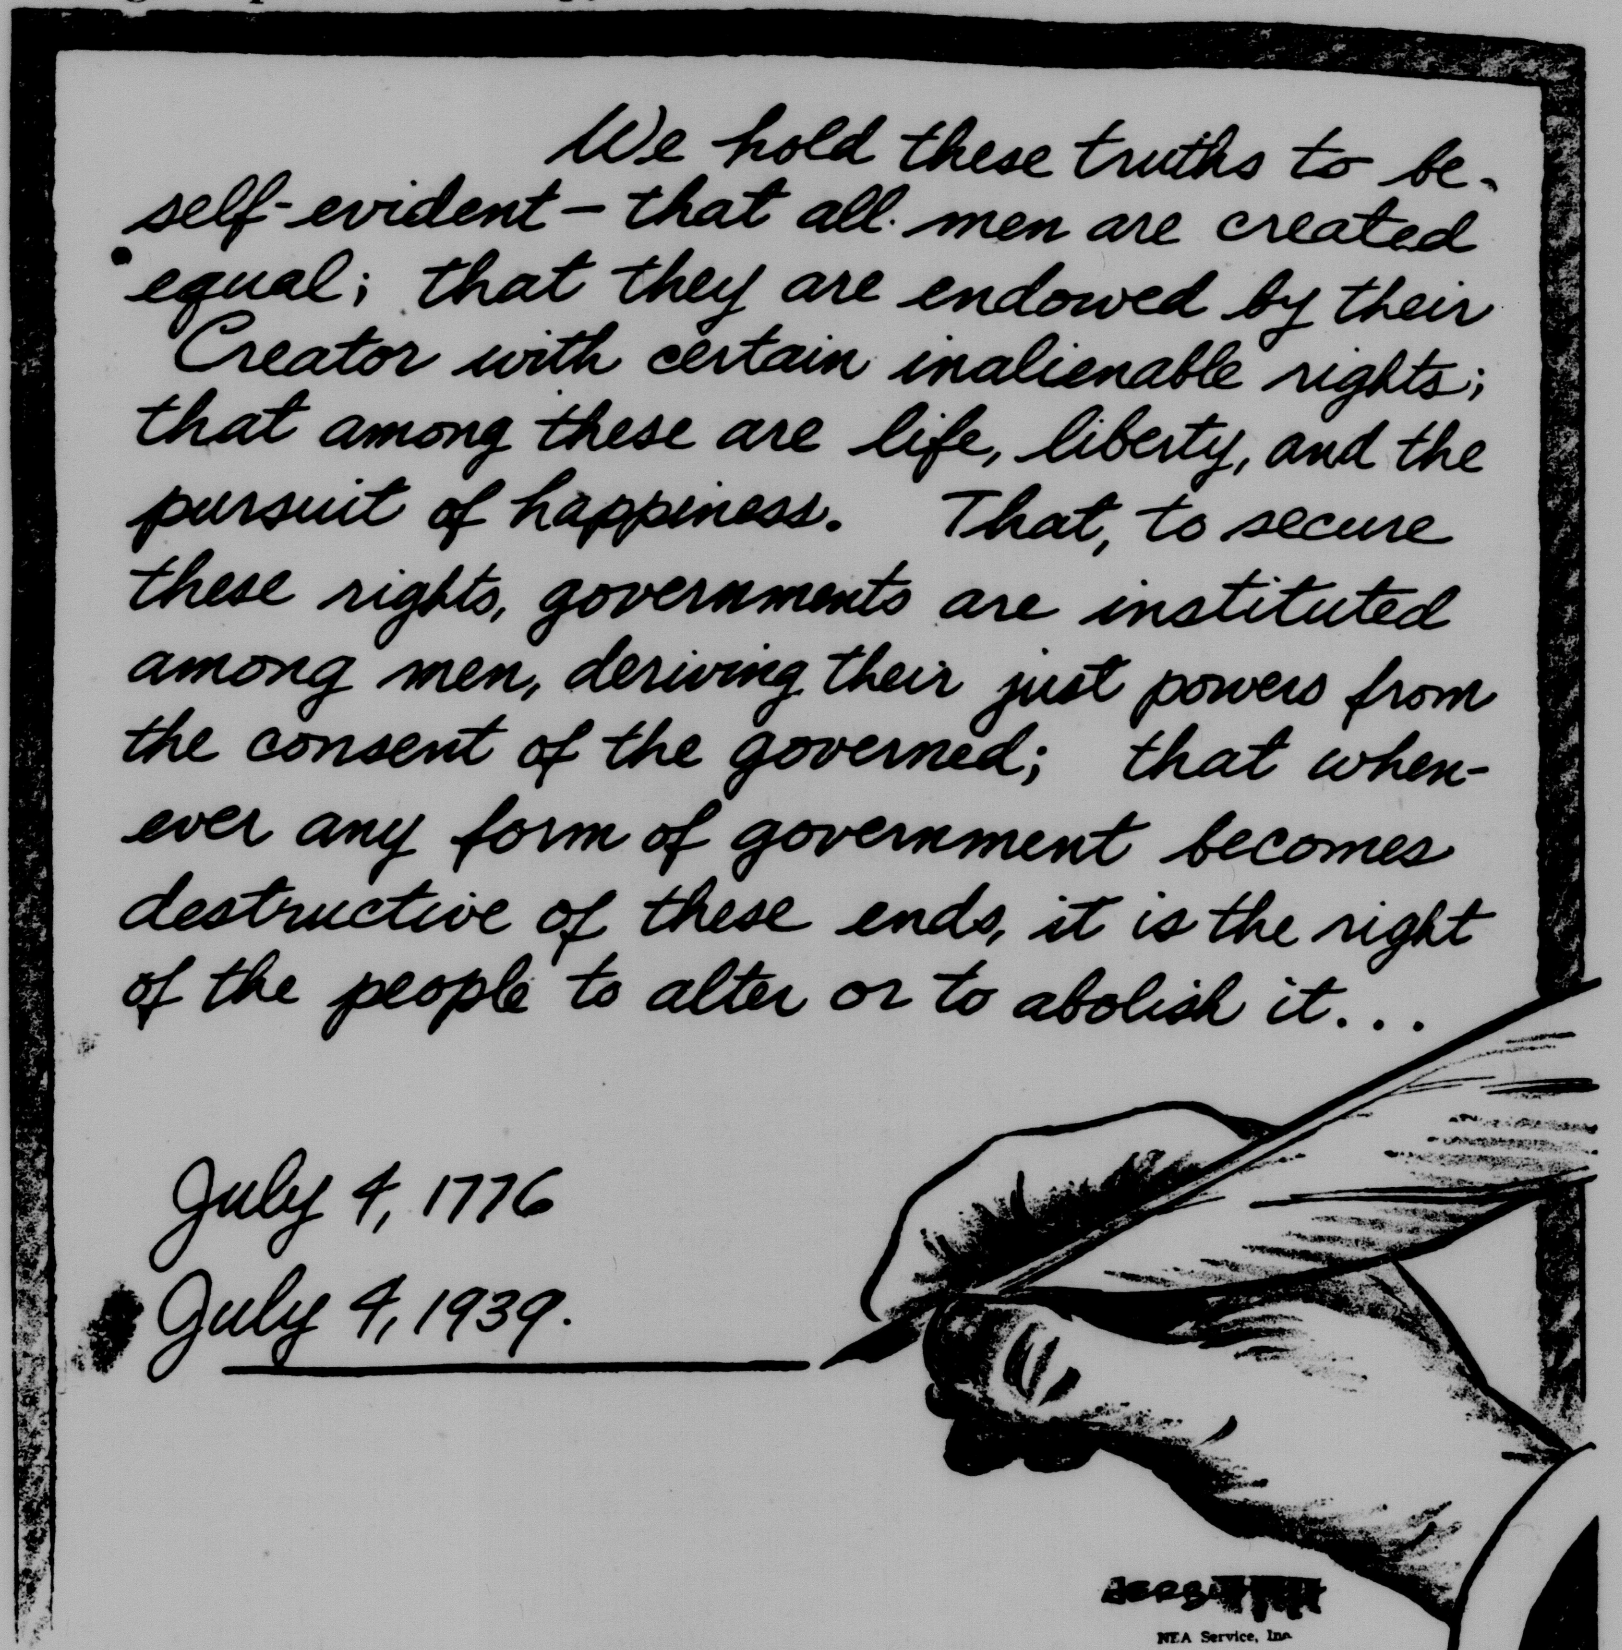 We hold these truths to be
self-evident – that all men are created
equal; that they are endowed by their
Creator with certain inalienable rights;
that among these are life, liberty, and the
pursuit of happiness. That, to secure
these rights, governments are instituted
among men, deriving their just powers from
the consent of the governed; that when-
ever any form of government becomes
destructive of these ends, it is the right
of the people to alter or to abolish it...
July 4, 1776
July 4, 1939.
NEA Service, Inc.